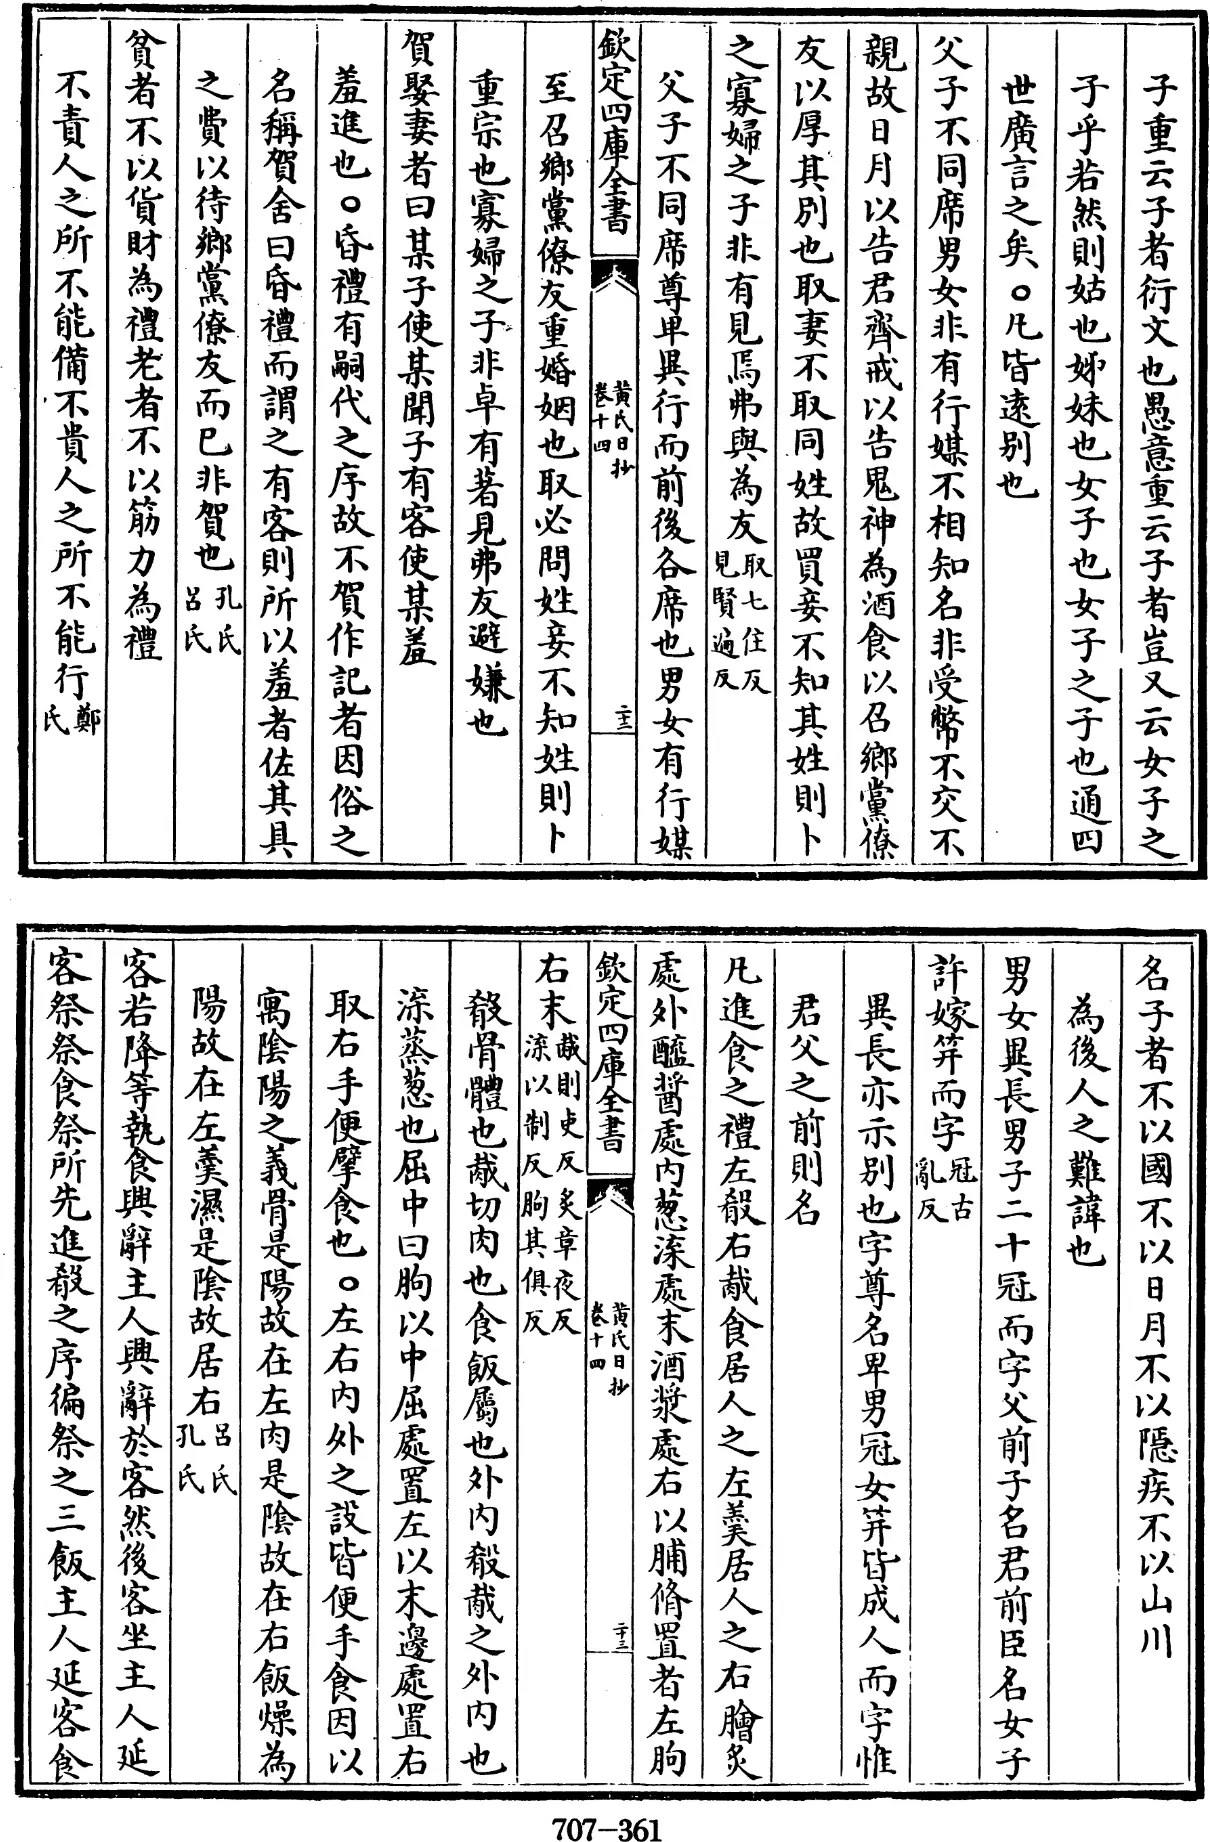 子重云子者衍文也愚意重云子者豈又云女子之
子乎若然則姑也姊妹也女子也女子之子也通四
世廣言之矣○凡皆逺别也
父子不同席男女非有行媒不相知名非受幣不交不
親故日月以告君齊戒以告鬼神為酒食以召鄉黨僚
友以厚其别也取妻不取同姓故買妾不知其姓則卜
之寡婦之子非有見焉弗與為友取七住反見賢遍反
父子不同席尊卑異行而前後各席也男女有行媒
欽定四庫全書
黄氏日抄
卷十四
二十二
至召鄉黨僚友重婚姻也取必問姓妾不知姓則卜
重宗也寡婦之子非卓有著見弗友避嫌也
賀娶妻者曰某子使某聞子有客使某羞
羞進也○昏禮有嗣代之序故不賀作記者因俗之
名稱賀舍曰昏禮而謂之有客則所以羞者佐其具
之費以待鄉黨僚友而已非賀也孔氏吕氏
貧者不以貨財為禮老者不以筋力為禮
不責人之所不能備不貴人之所不能行鄭氏
名子者不以國不以日月不以隠疾不以山川
為後人之難諱也
男女異長男子二十冠而字父前子名君前臣名女子
許嫁笄而字冠古亂反
異長亦示别也字尊名卑男冠女笄皆成人而字惟
君父之前則名
凡進食之禮左殽右胾食居人之左羮居人之右膾炙
處外醯醬處内葱渿處末酒漿處右以脯脩置者左朐
右末胾則吏反炙章夜反渿以制反朐其俱反
欽定四庫全書
黄氏日抄
卷十四
二十三
殽骨體也胾切肉也食飯屬也外内殽胾之外内也
渿蒸葱也屈中曰朐以中屈處置左以末邊處置右
取右手便擘食也○左右内外之設皆便手食因以
寓隂陽之義骨是陽故在左肉是隂故在右飯燥為
陽故在左羮濕是隂故居右吕氏孔氏
客若降等執食興辭主人興辭於客然後客坐主人延
客祭祭食祭所先進殽之序徧祭之三飯主人延客食
707-361